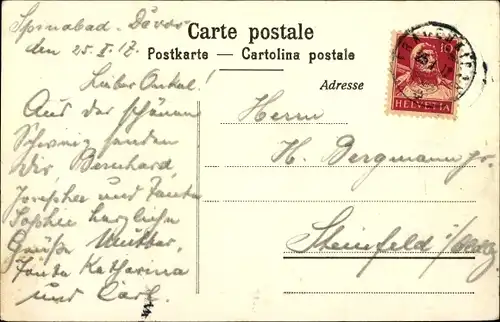 Carte postale
Postkarte — Cartolina postale
Adresse
10
HELVETIA
Spinabad-Davos
den 25. X. 17.
Lieber Onkel!
Aus der schönen
Schweiz senden
Dir Bernhard,
Josepha und Tante
Sophie herzliche
Grüße Mutter,
Tante Katharina
und Carl.
Herrn
H. Bergmann jr.
Steinfeld i/Oldbg